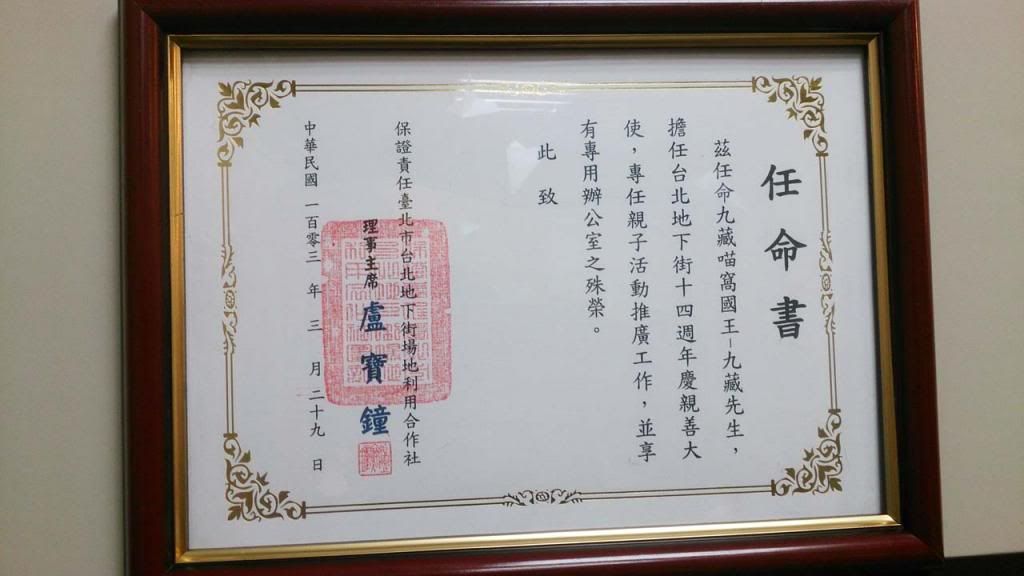 任命書
茲任命九藏喵窩國王－九藏先生，
擔任台北地下街十四週年慶親善大
使，專任親子活動推廣工作，並享
有專用辦公室之殊榮。
此致
保證責任臺北市台北地下街場地利用合作社
理事主席 盧寶鐘
中華民國 一百零三 年 三 月 二十九 日